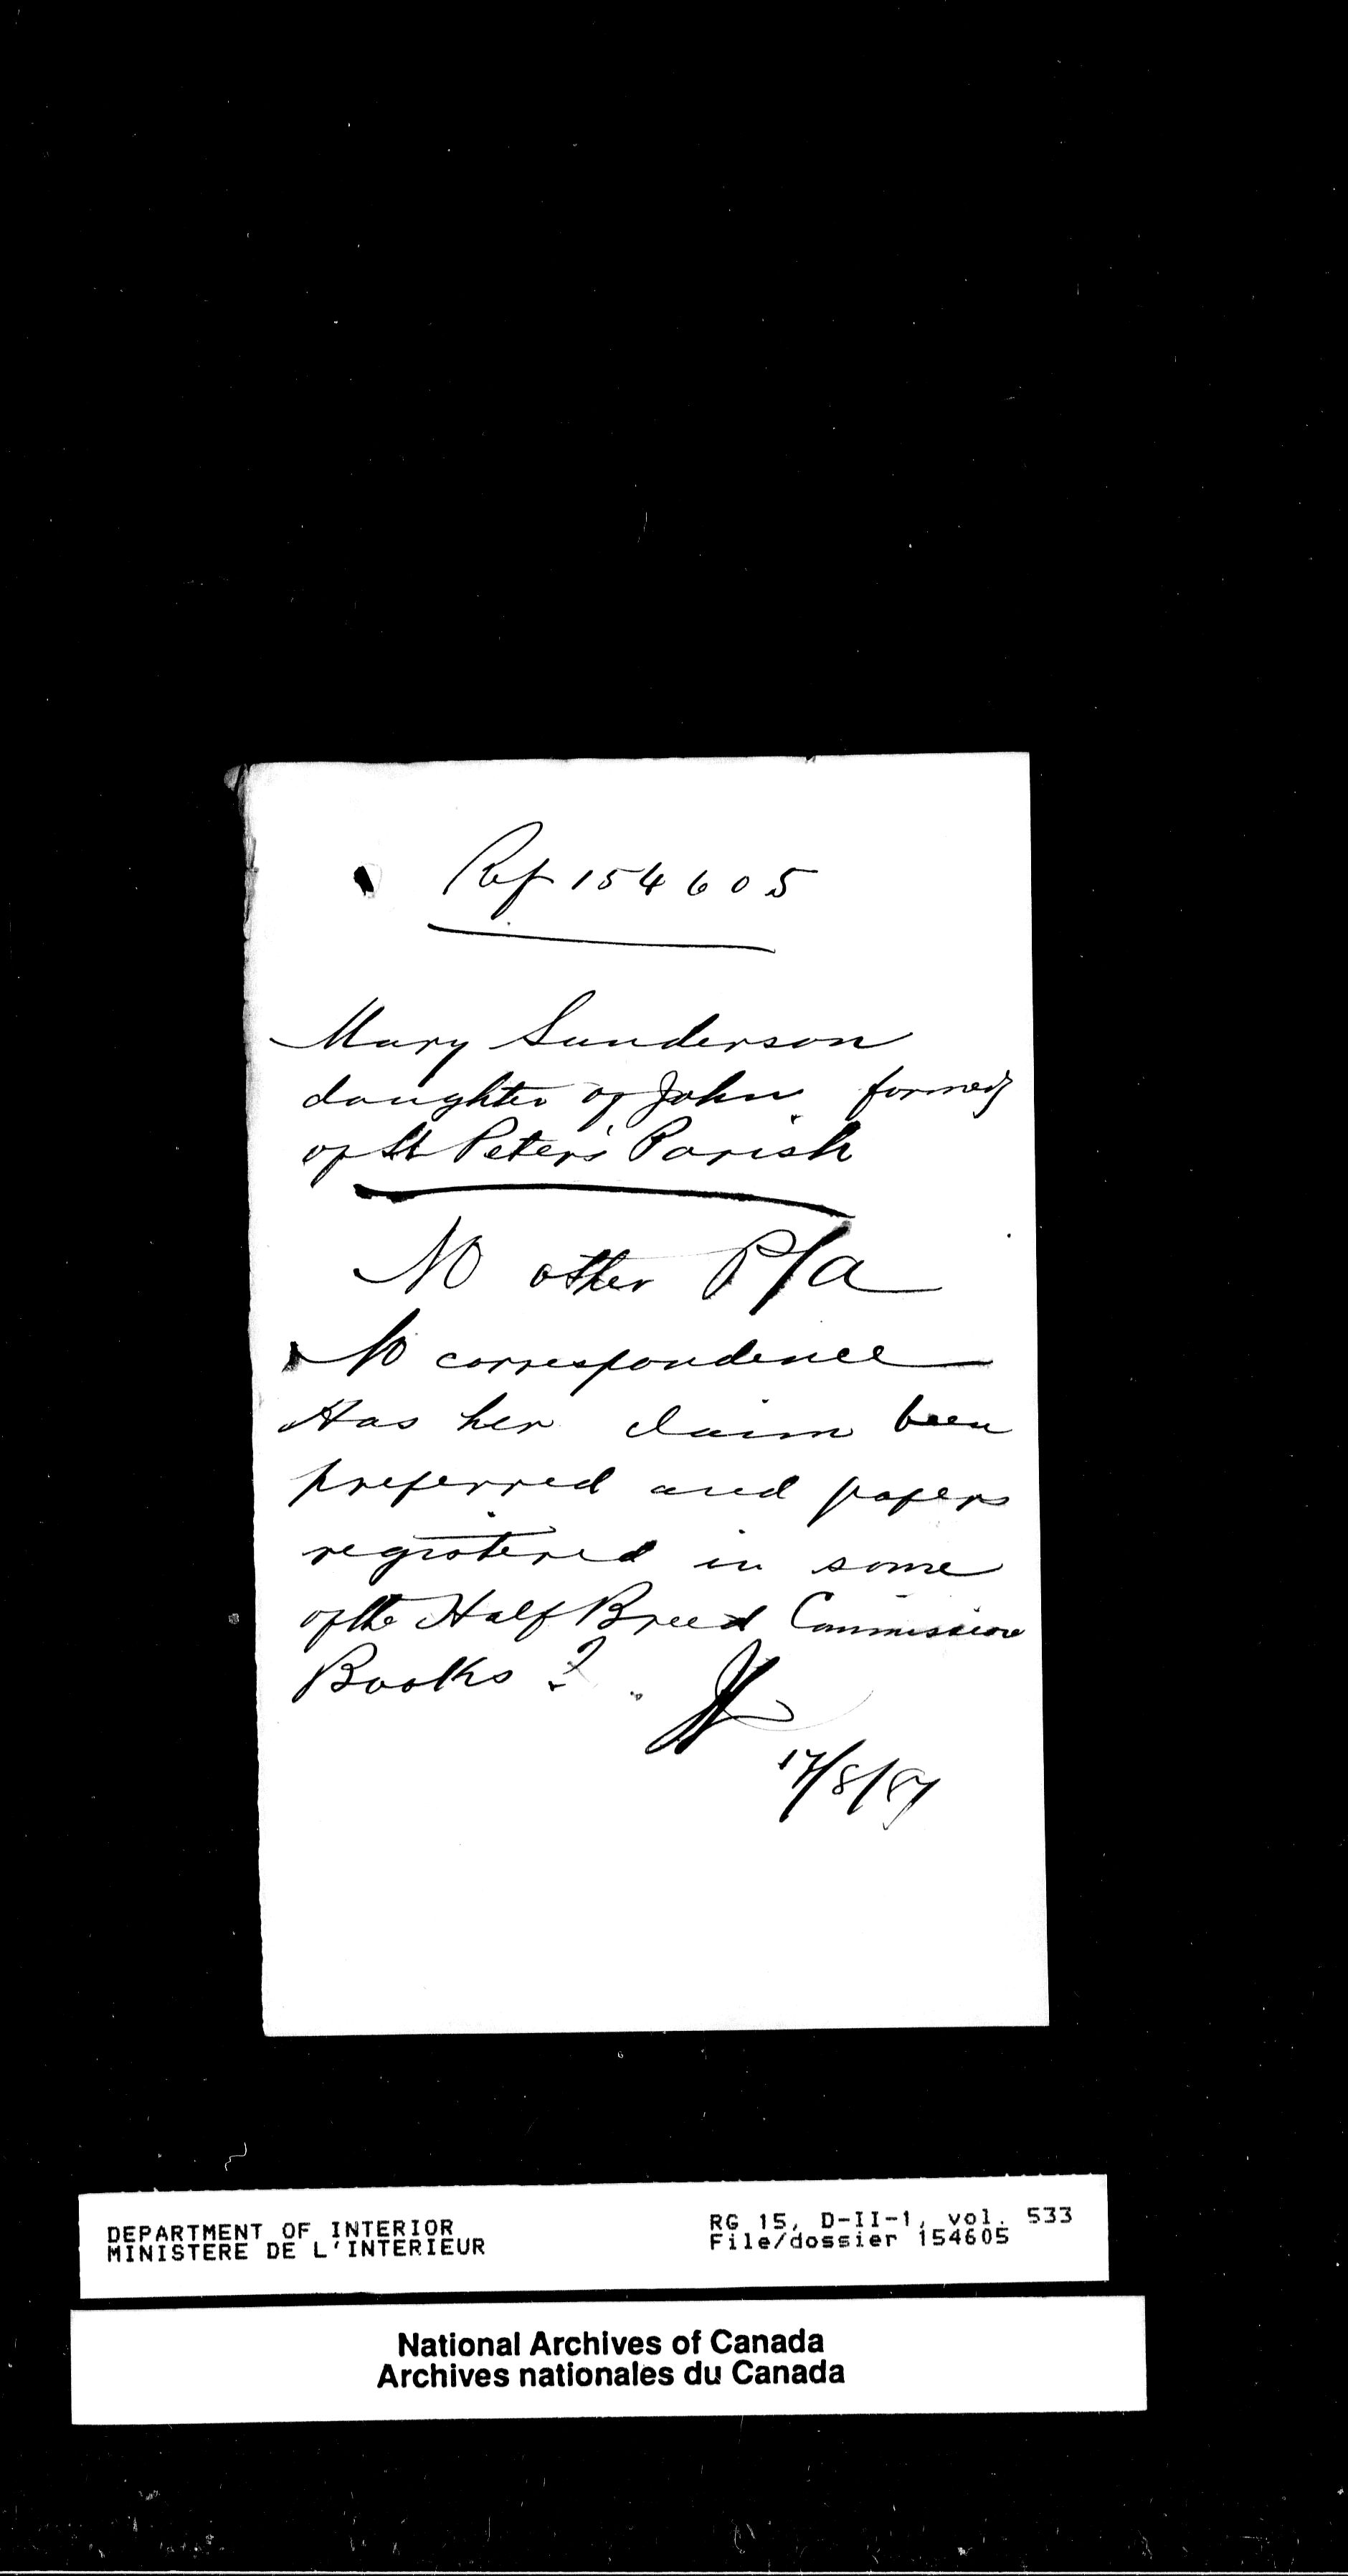 Ref 154605
Mary Sanderson
daughter of John formerly
of St Peter's Parish
No other P/A
No correspondence
Has her claim been
preferred and papers
registered in some
of the Half Breed Commission
Books ?
17/8/87
DEPARTMENT OF INTERIOR
MINISTERE DE L'INTERIEUR
RG 15, D-II-1, vol. 533
File/dossier 154605
National Archives of Canada
Archives nationales du Canada